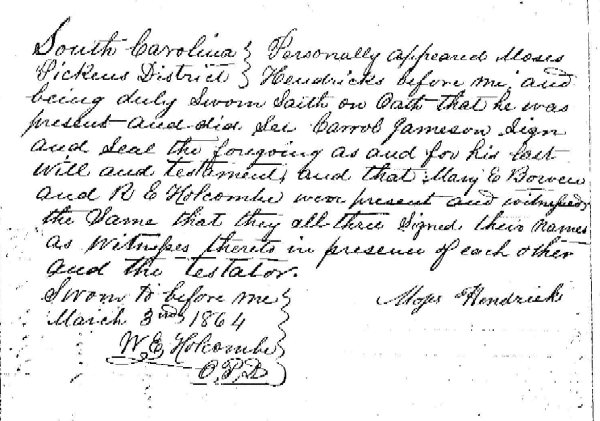 South Carolina } Personally appeared Moses
Pickens District } Hendricks before me, and
being duly Sworn Saith on Oath that he was
present and did See Carrol Jameson Sign
and Seal the foregoing as and for his last
Will and testament, and that Mary E Bowen
and R E Holcombe were present and witnessed
the Same that they all three Signed their names
as Witnesses thereto in presence of each other
and the testator.
Sworn to before me } Moses Hendricks
March 3rd 1864
W. E. Holcombe
O. P. D.